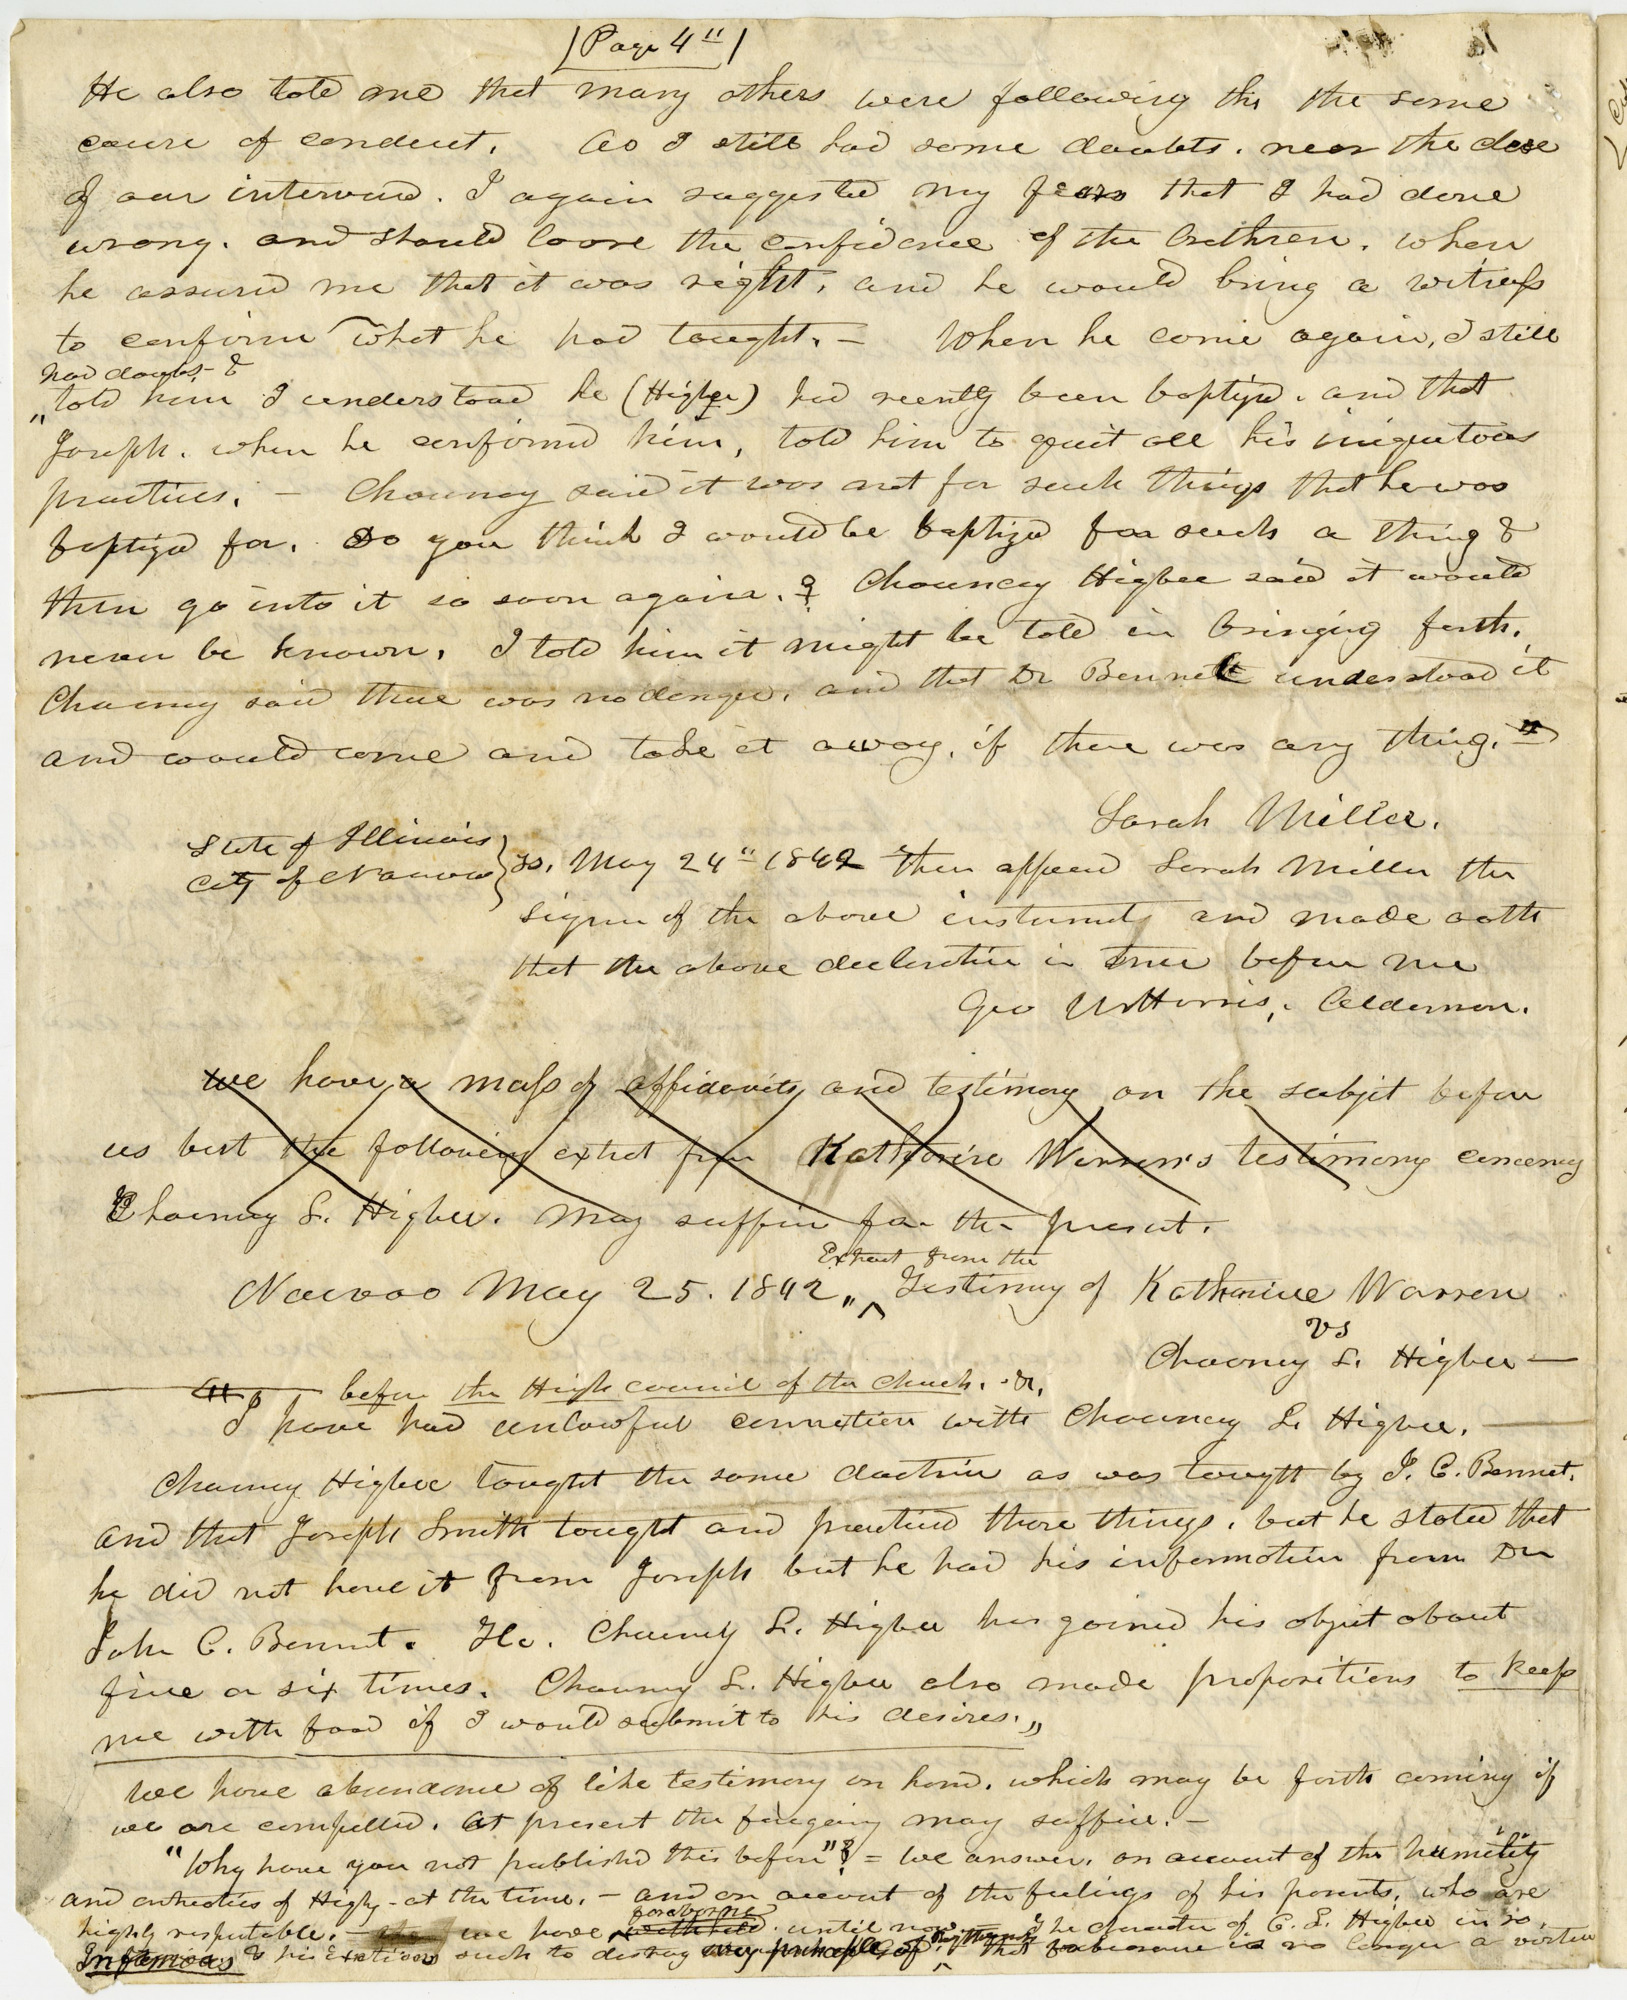 (Page 4")
He also told me that many others were following the the same
course of conduct. As I still had some doubts. near the close
of our interview. I again suggested my fears that I had done
wrong. and should loose the confidence of the brethren. when
he assured me that it was right. and he would bring a witness
to confirm what he had taught. — When he come again, I still
had doubts &
told him I understood he (Higbee) had recently been baptizd. and that
Joseph. when he confirmed him, told him to quit all his iniquitous
practices. — Chauncy said it was not for such things that he was
baptizd for. do you think I would be baptizd for such a thing &
then go into it so soon again. ? Chauncey Higbee said it would
never be known. I told him it might be told in bringing forth.
Chauncy said there was no danger. and that Dr Bennett understood it
and would come and take it away. if there was any thing."
Sarah Miller.
State of Illinois
City of Nauvoo } ss. May 24" 1842 Then appeard Sarah Miller the
signer of the above instrument and made oath
that the above declaration is true before me
Geo W Harris, Alderman.
We have a mass of affidavits and testimony on the subjet before
us but the following extrct from Katharine Warren's testimony concerning
Chauncy L. Higbee. may suffice for the present.
Extract from the
Nauvoo May 25. 1842 „ ^ Testimony of Katharine Warren
vs
Chauncy L. Higbee —
before the High council of the Church. &c.
"I have had unlawful connection with Chauncey L. Higbee. —
Chauncy Higbee taught the same doctrine as was taught by J. C. Bennet.
and that Joseph Smith taught and practised those things. but he stated that
he did not have it from Joseph but he had his information from Dr
John C. Bennet. He. Chauncy L. Higbee has gained his object about
five or six times. Chauncy L. Higbee also made propositions to keep
me with food if I would submit to his desires."
We have abundance of like testimony on hand. which may be forth coming if
we are compelled. at present the foregoing may suffice. —
"Why have you not published this before"? = we answer. on account of the humility
and entreaties of Higby at the time. — and on account of the feelings of his parents, who are
highly respectable. — we have forborne until now. The character of C. L. Higbee is so
Infamous & his exertions such to destroy every principle of that forbearance is no longer a virtue